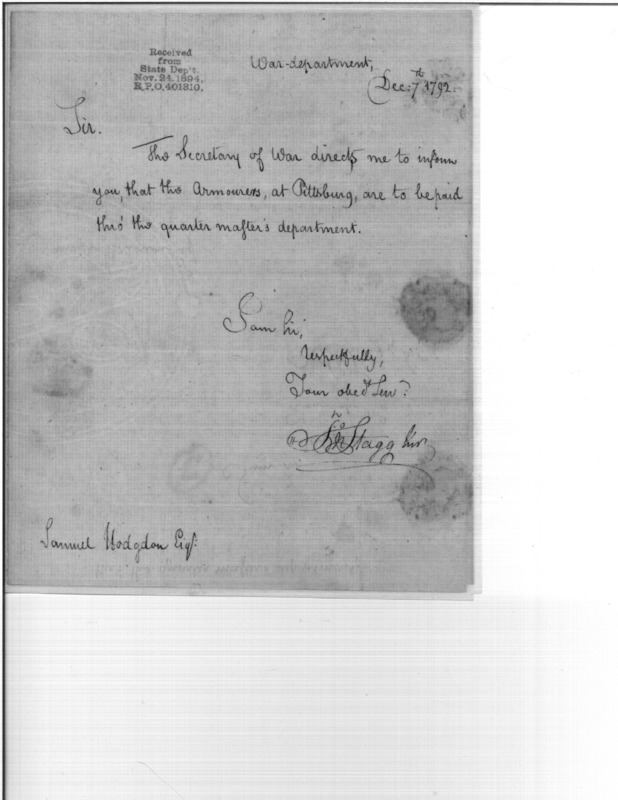 Received
from
State Dep't.
Nov. 24, 1894,
R.P.O. 401310.
War-department,
Dec: 7th 1792.
Sir.
The Secretary of War directs me to inform
you, that the Armourers, at Pittsburg, are to be paid
thro' the quarter master's department.
I am Sir,
respectfully,
Your obed. Serv.
Jno Stagg Junr
Samuel Hodgdon Esqr.